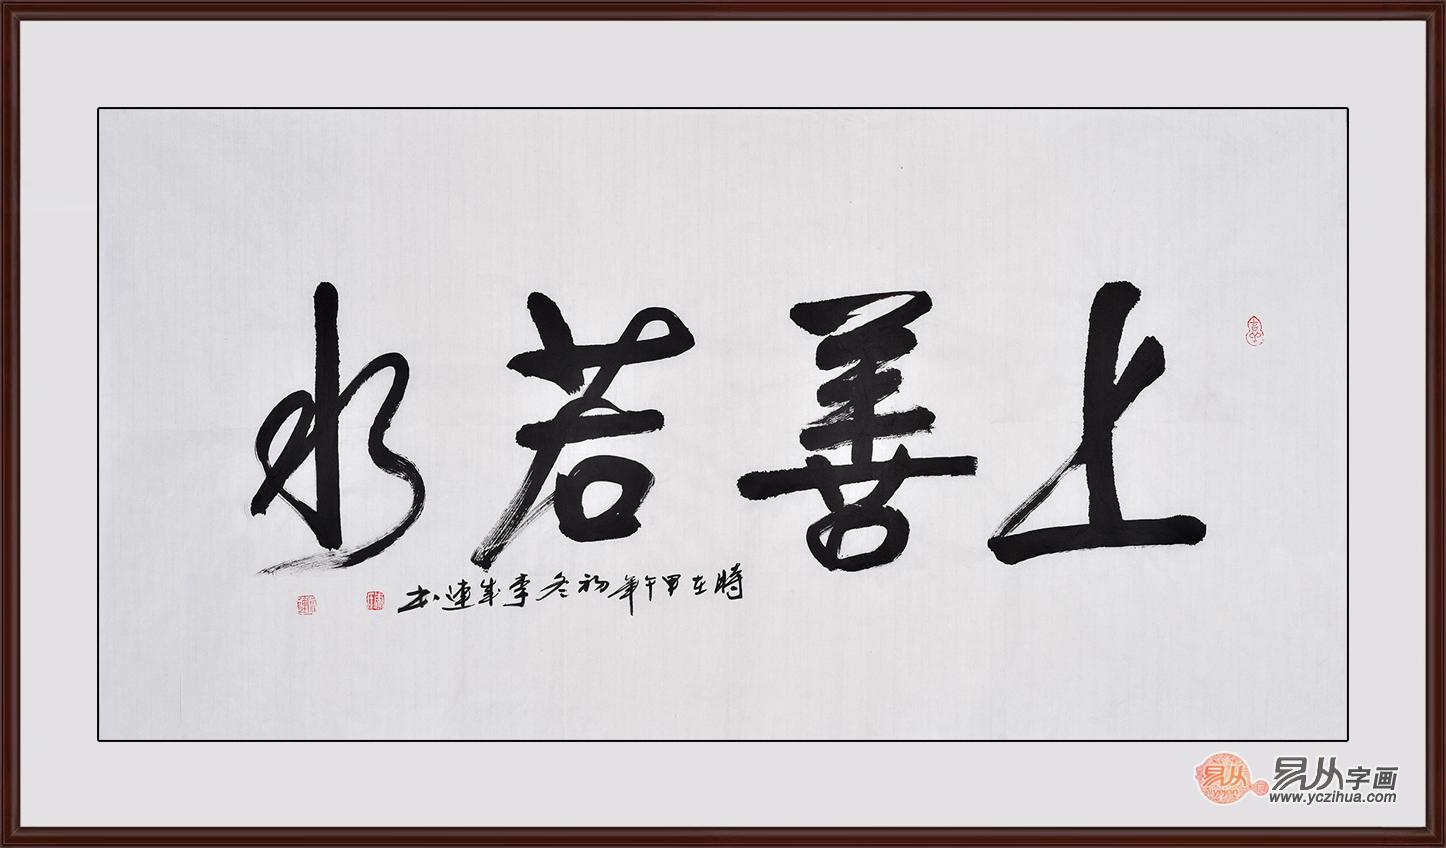 上善若水
時在甲午年初冬李成連书
易从
yicon
易从字画
www.yczihua.com